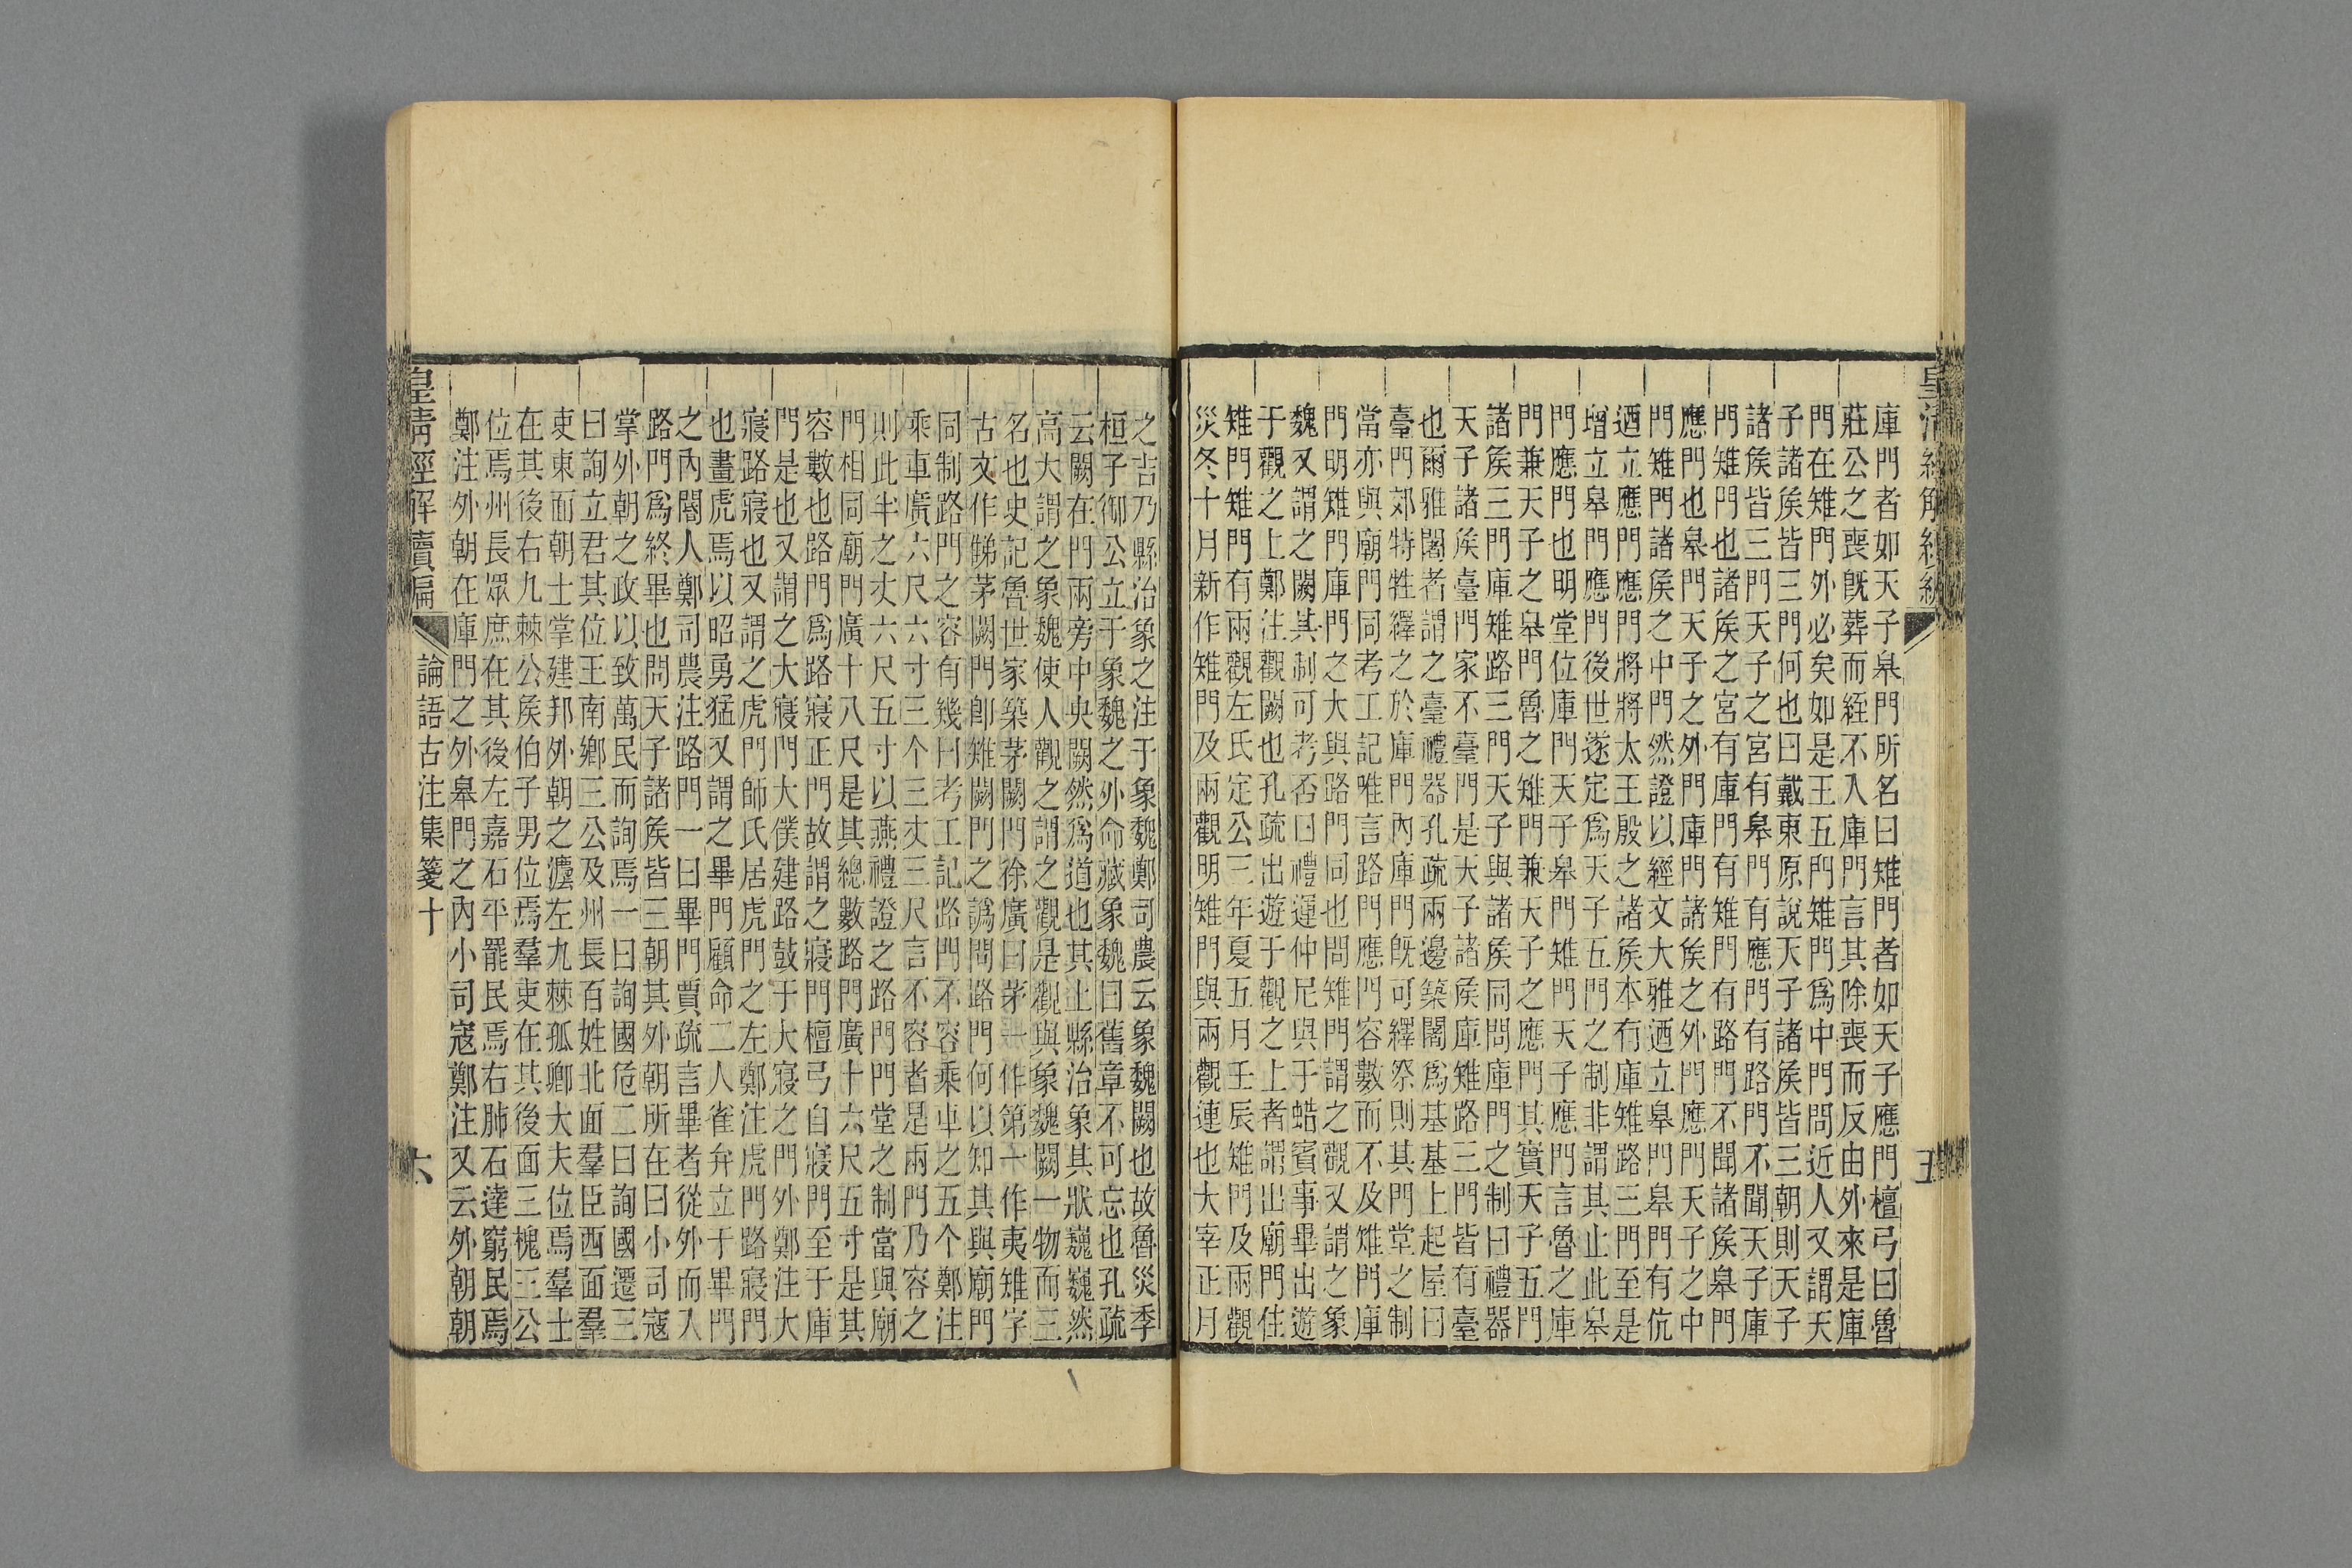 庫門者如天子皋門所名曰雉門者如天子應門檀弓曰魯
莊公之喪旣葬而絰不入庫門言其除喪而反由外來是庫
門在雉門外必矣如是王五門雉門爲中門問近人又謂天
子諸矦皆三門何也曰戴東原說天子諸矦皆三朝則天子
諸矦皆三門天子之宮有皋門有應門有路門不聞天子庫
門雉門也諸矦之宮有庫門有雉門有路門不聞諸矦皋門
應門也皋門天子之外門庫門諸矦之外門應門天子之中
門雉門諸矦之中門然證以經文大雅迺立皋門皋門有伉
迺立應門應門將將太王殷之諸矦本有庫雉路三門至是
增立皋門應門後世遂定爲天子五門之制非謂其止此皋
門應門也明堂位庫門天子皋門雉門天子應門言魯之庫
門兼天子之皋門魯之雉門兼天子之應門其實天子五門
諸矦三門庫雉路三門天子與諸矦同問庫門之制曰禮器
天子諸矦臺門家不臺門是天子諸矦庫雉路三門皆有臺
也爾雅闍者謂之臺禮器孔疏兩邊築闍爲基基上起屋曰
臺門郊特牲繹之於庫門內庫門旣可繹祭則其門堂之制
當亦與廟門同考工記唯言路門應門容數而不及雉門庫
門明雉門庫門之大與路門同也問雉門謂之觀又謂之象
魏又謂之闕其制可考否曰禮運仲尼與于蜡賓事畢出遊
于觀之上鄭注觀闕也孔疏出遊于觀之上者謂出廟門往
雉門雉門有兩觀左氏定公三年夏五月壬辰雉門及兩觀
災冬十月新作雉門及兩觀明雉門與兩觀連也大宰正月
之吉乃縣治象之注于象魏鄭司農云象魏闕也故魯災季
桓子御公立于象魏之外命藏象魏曰舊章不可忘也孔疏
云闕在門兩旁中央闕然爲道也其上縣治象其狀巍巍然
高大謂之象魏使人觀之謂之觀是觀與象魏闕一物而三
名也史記魯世家築茅闕門徐廣曰茅一作第一作夷雉字
古文作䋛茅闕門卽雉闕門之譌問路門何以知其與廟門
同制路門之容有幾曰考工記路門不容乘車之五个鄭注
乘車廣六尺六寸三个三丈三尺言不容者是兩門乃容之
則此半之丈六尺五寸以燕禮證之路門門堂之制當與廟
門相同廟門廣十八尺是其總數路門廣十六尺五寸是其
容數也路門爲路寢正門故謂之寢門檀弓自寢門至于庫
門是也又謂之大寢門大僕建路鼓于大寢之門外鄭注大
寢路寢也又謂之虎門師氏居虎門之左鄭注虎門路寢門
也畫虎焉以昭勇猛又謂之畢門顧命二人雀弁立于畢門
之內閽人鄭司農注路門一曰畢門賈疏言畢者從外而入
路門爲終畢也問天子諸矦皆三朝其外朝所在曰小司寇
掌外朝之政以致萬民而詢焉一曰詢國危二曰詢國遷三
曰詢立君其位王南鄉三公及州長百姓北面羣臣西面羣
吏東面朝士掌建邦外朝之灋左九棘孤卿大夫位焉羣士
在其後右九棘公矦伯子男位焉羣吏在其後面三槐三公
位焉州長眾庶在其後左嘉石平罷民焉右肺石達窮民焉
鄭注外朝在庫門之外皋門之內小司寇鄭注又云外朝朝
皇淸經解續編 論語古注集箋十 六